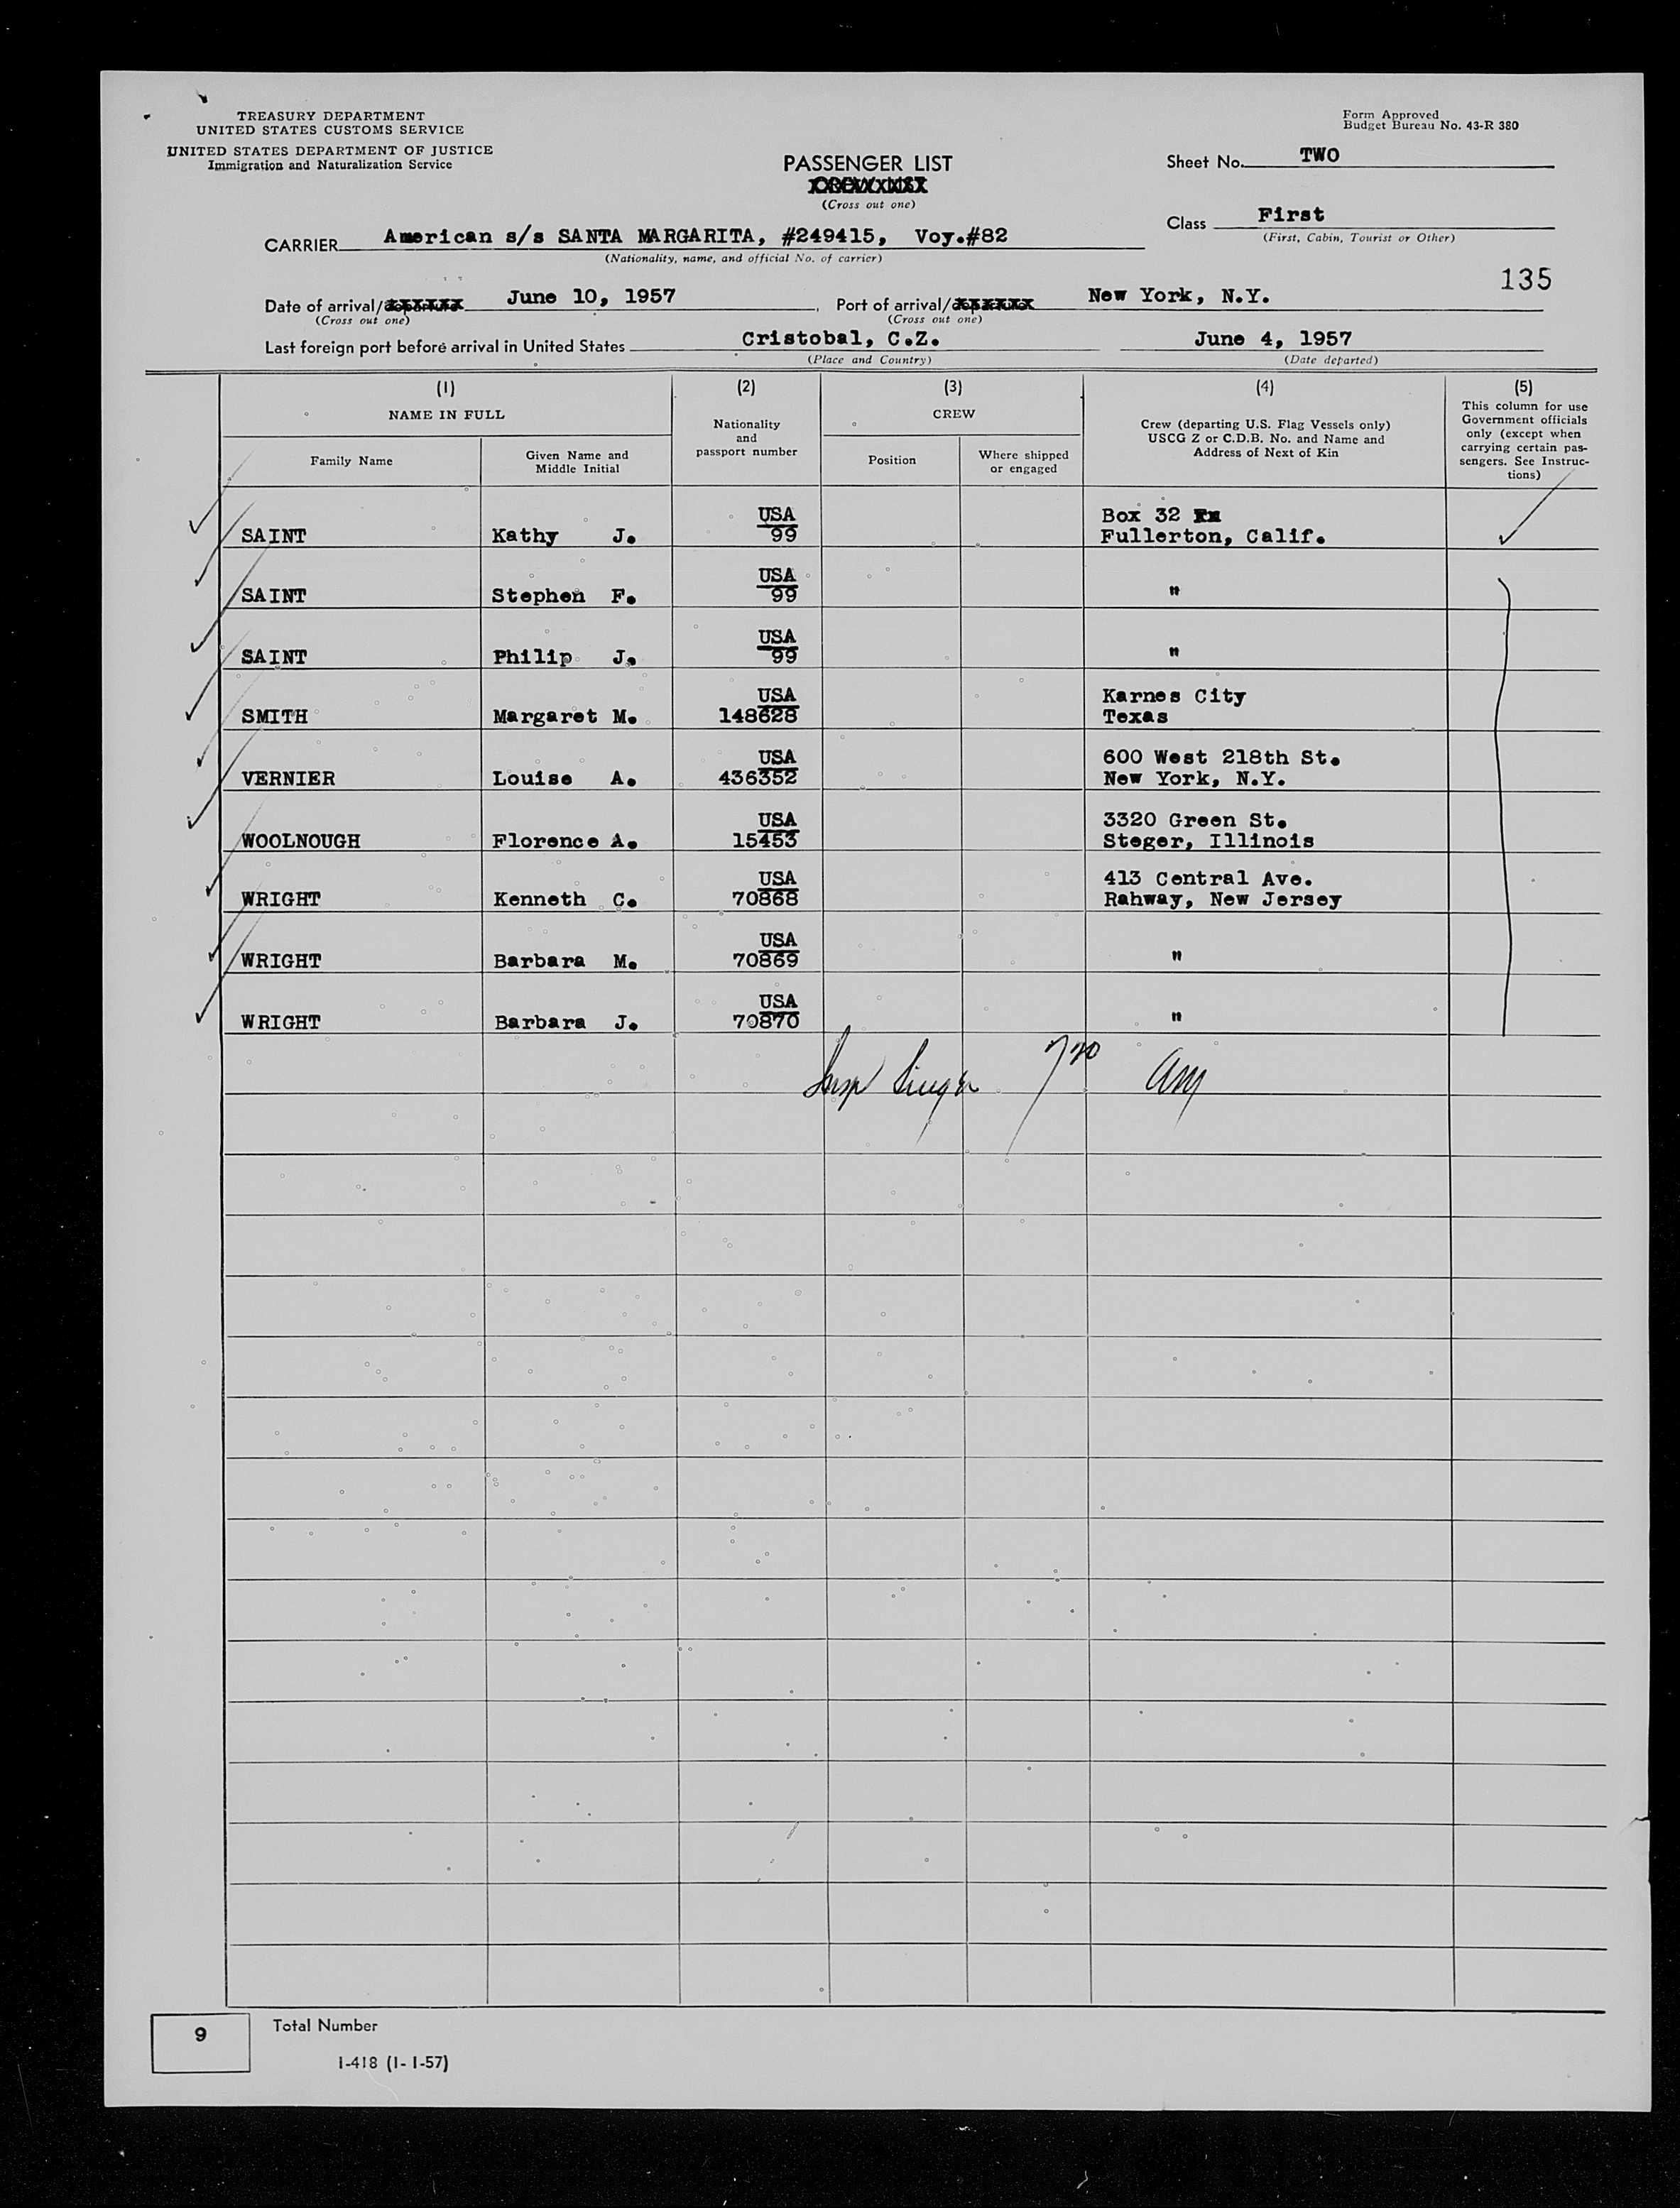 TREASURY DEPARTMENT
UNITED STATES CUSTOMS SERVICE
UNITED STATES DEPARTMENT OF JUSTICE
Immigration and Naturalization Service
Form Approved
Budget Bureau No. 43-R 380
PASSENGER LIST
(Cross out one)
Sheet No. TWO
Class First
(First, Cabin, Tourist or Other)
CARRIER American s/s SANTA MARGARITA, #249415, Voy.#82
(Nationality, name, and official No. of carrier)
135
Date of arrival/departure June 10, 1957, Port of arrival/departure New York, N.Y.
(Cross out one) (Cross out one)
Last foreign port before arrival in United States Cristobal, C.Z. June 4, 1957
(Place and Country) (Date departed)
(1) (2) (3) (4) (5)
NAME IN FULL
Family Name
Given Name and
Middle Initial
Nationality
and
passport number
CREW
Position
Where shipped
or engaged
Crew (departing U.S. Flag Vessels only)
USCG Z or C.D.B. No. and Name and
Address of Next of Kin
This column for use
Government officials
only (except when
carrying certain pas-
sengers. See Instruc-
tions)
USA Box 32
SAINT Kathy J. 99 Fullerton, Calif.
USA
SAINT Stephen F. 99 "
USA
SAINT Philip J. 99 "
USA Karnes City
SMITH Margaret M. 148628 Texas
USA 600 West 218th St.
VERNIER Louise A. 436352 New York, N.Y.
USA 3320 Green St.
WOOLNOUGH Florence A. 15453 Steger, Illinois
USA 413 Central Ave.
WRIGHT Kenneth C. 70868 Rahway, New Jersey
USA
WRIGHT Barbara M. 70869 "
USA
WRIGHT Barbara J. 70870 "
Insp Singer 7 20 am
9 Total Number
I-418 (1-1-57)